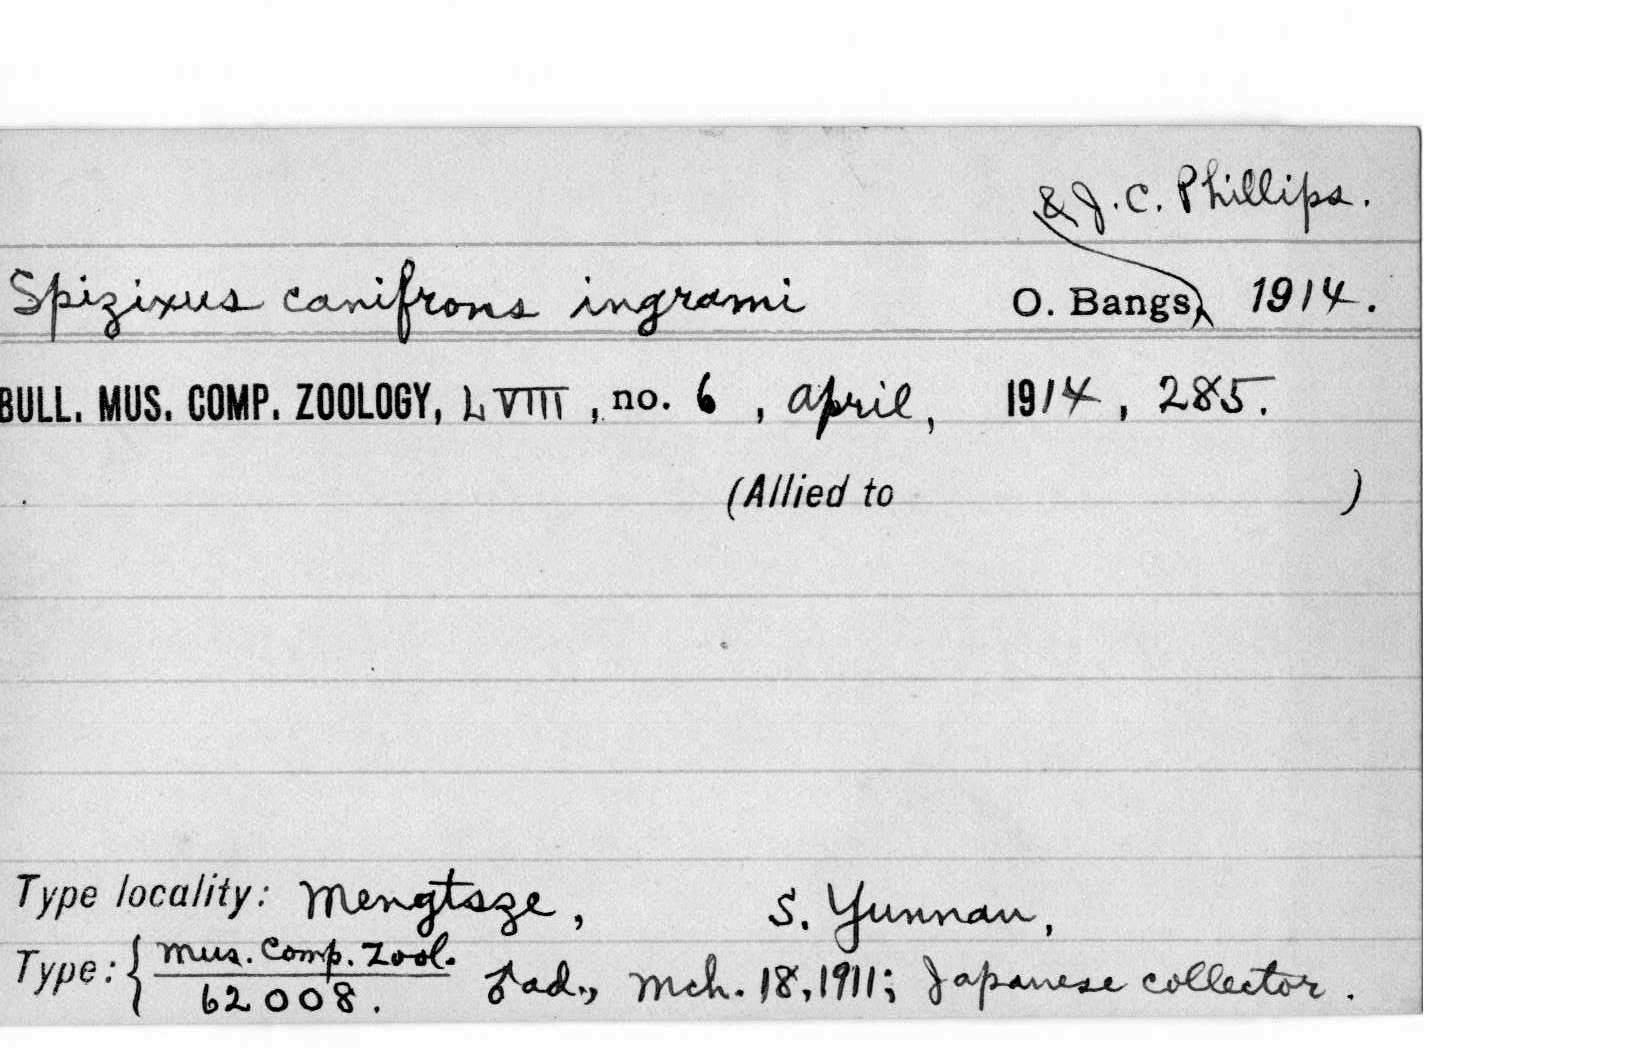 & J. C. Phillips.
Spizixus canifrons ingrami O. Bangs, 1914.
BULL. MUS. COMP. ZOOLOGY, LVIII, no. 6, April, 1914, 285.
(Allied to )
Type locality: Mengtsze, S. Yunnan,
Type: { Mus. Comp. Zool.
62008. ♂ ad., Mch. 18, 1911; Japanese collector.